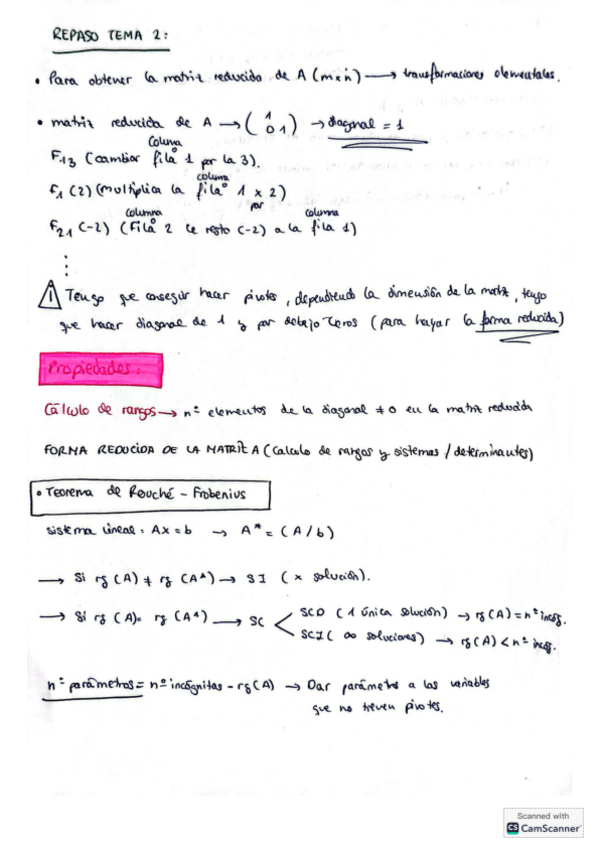 REPASO TEMA 2:
• Para obtener la matriz reducida de A (m×n) → transformaciones elementales.
• matriz reducida de A → ( 1 0 1 ) → diagonal = 1
columna
F13 (cambiar fila 1 por la 3).
columna
F1 (2) (multiplica la fila 1 x 2)
por
columna columna
F21 (-2) (Fila 2 le resto (-2) a la fila 1)
⋮
! Tengo que conseguir hacer pivotes, dependiendo la dimensión de la matriz, tengo
que hacer diagonal de 1 y por debajo ceros (para hayar la forma reducida)
Propiedades:
Cálculo de rangos → nº elementos de la diagonal ≠ 0 en la matriz reducida
FORMA REDUCIDA DE LA MATRIZ A (Calculo de rangos y sistemas / determinantes)
• Teorema de Rouché - Frobenius
sistema lineal: Ax = b → A* = (A/b)
→ Si rg (A) ≠ rg (A*) → SI (x solución).
→ Si rg (A) = rg (A*) → SC < SCD (1 única solución) → rg(A) = nº incóg.
SCI (∞ soluciones) → rg(A) < nº incóg.
nº parámetros = nº incógnitas - rg(A) → Dar parámetro a las variables
que no tienen pivotes.
Scanned with
CS CamScanner